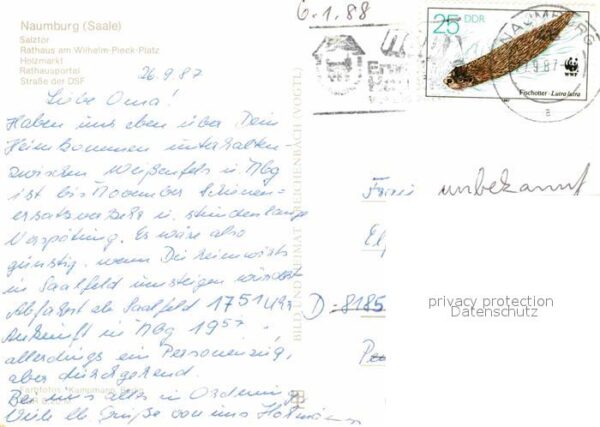 Naumburg (Saale)
Salztor
Rathaus am Wilhelm-Pieck-Platz
Holzmarkt
Rathausportal
Straße der DSF
26.9.87
Liebe Oma!
Haben uns eben über Dein
Heimkommen unterhalten-
zwischen Weißenfels u. Nbg
ist bis November Schienen-
ersatzverkehr u. stundenlange
Verspätung. Es wäre also
günstig, wenn Du heimwärts
in Saalfeld umsteigen würdest
Abfahrt ab Saalfeld 1751 Uhr
Ankunft in Nbg 1957,
allerdings ein Personenzug,
aber durchgehend.
Bei uns alles in Ordnung
Viele lb Grüße von uns
BILD UND HEIMAT REICHENBACH (VOGTL)
6.1.88
25 DDR
WWF
Fischotter - Lutra lutra
NAUMBURG
9.87
a
Frau unbekannt
D-8185
privacy protection
Datenschutz